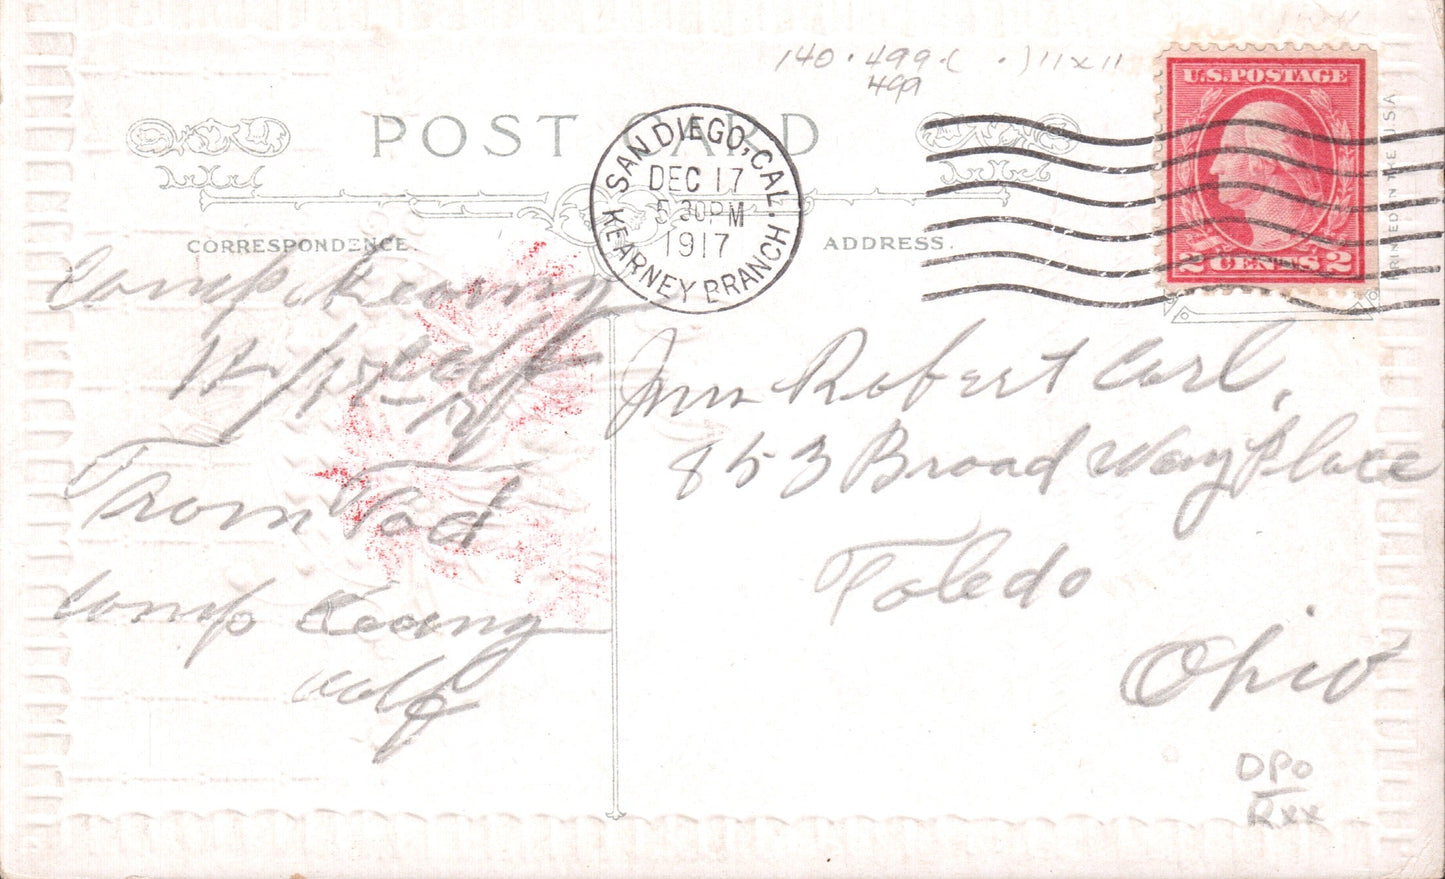 140 · 499 · ( · ) 11 x 11
499
POST CARD
U.S. POSTAGE
2 CENTS 2
PRINTED IN THE U.S.A
SAN DIEGO, CAL.
DEC 17
5 30 PM
1917
KEARNEY BRANCH
CORRESPONDENCE.
ADDRESS.
Camp Kearny
Calf
From Tod
Camp Kearny
Calf
Robert Carl,
853 Broad Way Place
Toledo
Ohio
DPO
Rxx